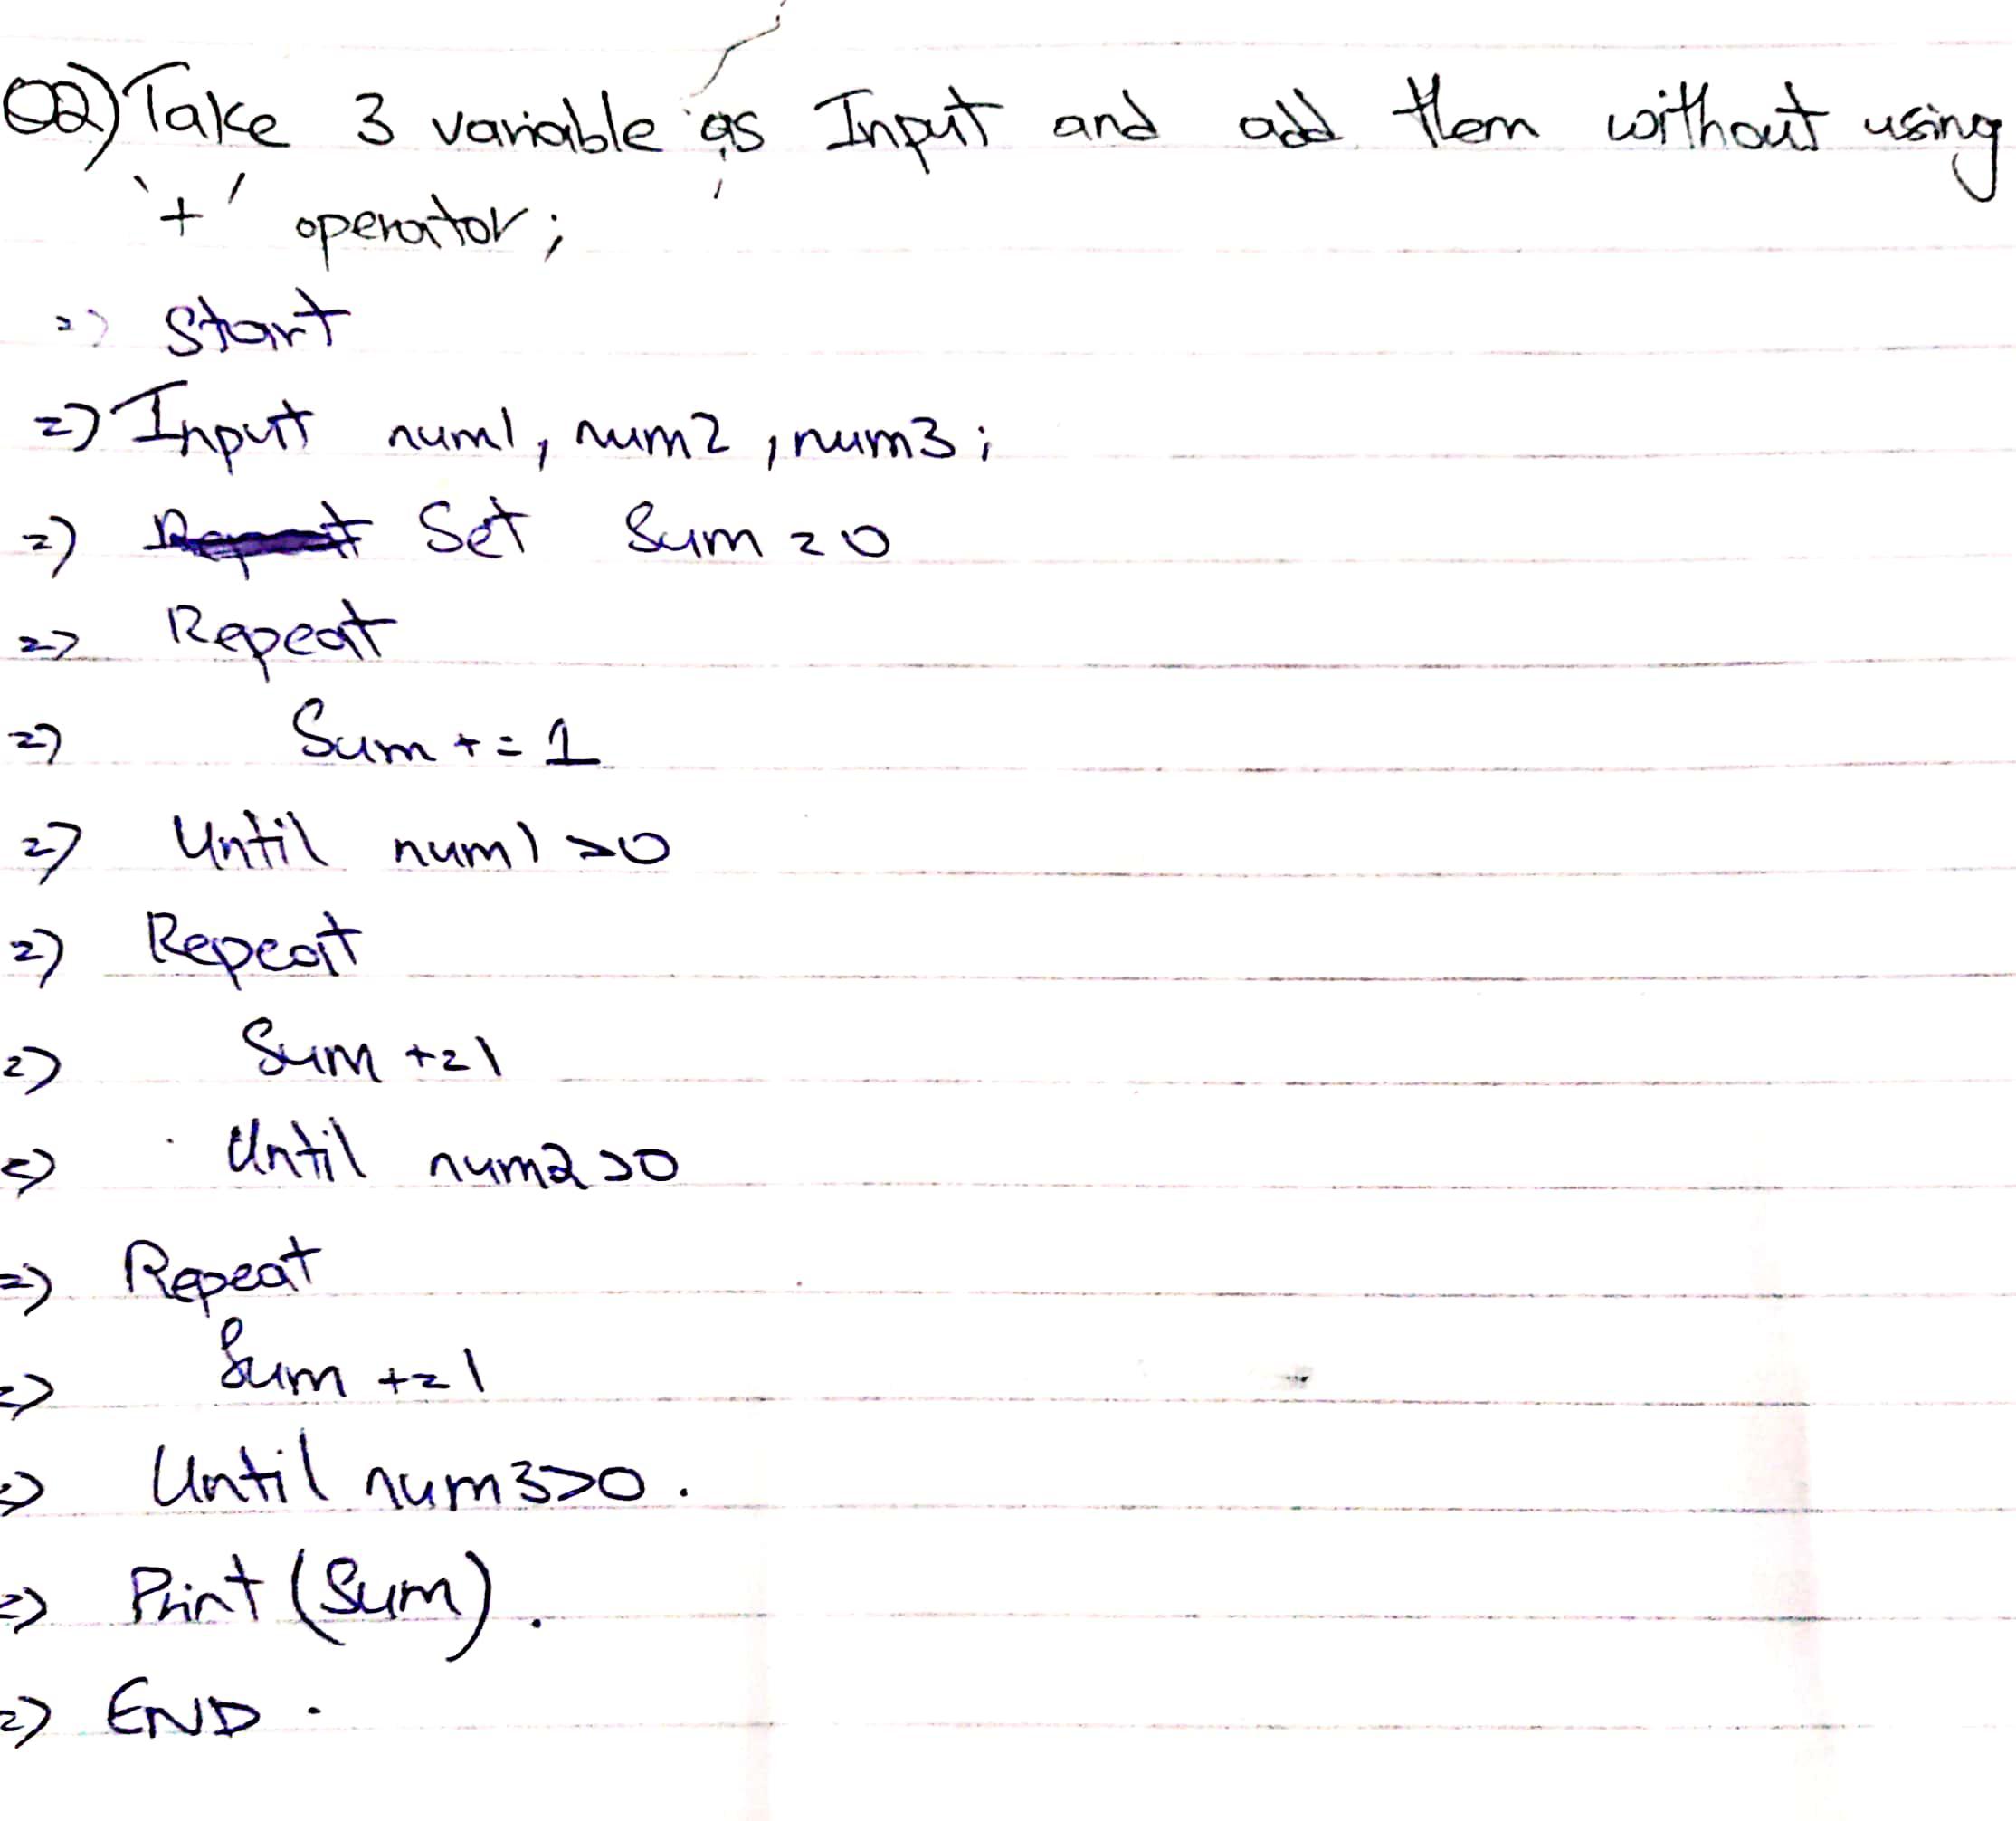 Q2) Take 3 variable as Input and add them without using
'+' operator;
=> Start
=> Input num1, num2, num3;
=> Set Sum = 0
=> Repeat
=> Sum += 1
=> Until num1 >0
=> Repeat
=> Sum +=1
=> Until num2 >0
=> Repeat
=> Sum +=1
=> Until num3>0.
=> Print (Sum).
=> END.